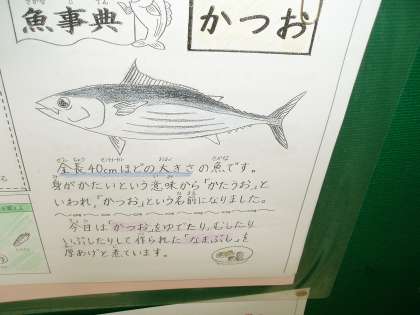 魚事典
かつお
全長40cmほどの大きさの魚です。
身がかたいという意味から「かたうお」と
いわれ、「かつお」という名前になりました。
今日は「かつお」をゆでたり、むしたり
いぶしたりして作られた「なまぶし」を
厚あげと煮ています。